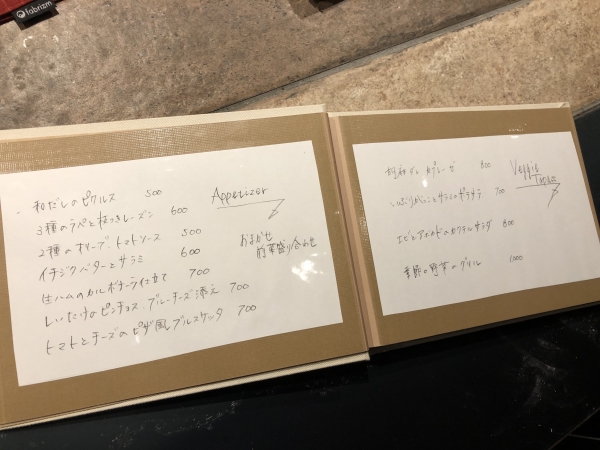 fabrizm
Appetizer
和だしのピクルス 500
3種のラペと枝つきレーズン 600
2種のオリーブ、トマトソース 500
イチジクバターとサラミ 600
生ハムのカルボナーラ仕立て 700
しいたけのピンチョス、ブルーチーズ添え 700
トマトとチーズのピザ風ブルスケッタ 700
おまかせ
前菜盛り合わせ
Veggie
カプレーゼ 800
サラミのポテサラ 700
エビとアボカドのカクテルサラダ 800
季節の野菜のグリル 1000